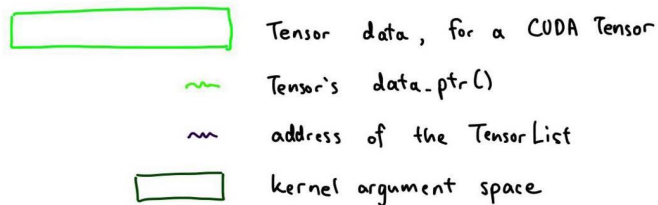 Tensor data, for a CUDA Tensor
Tensor's data_ptr()
address of the TensorList
kernel argument space